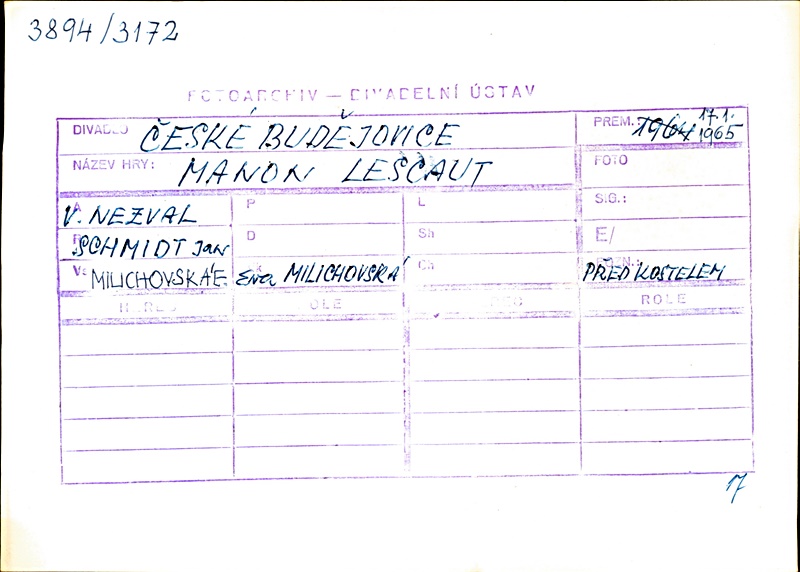 3894/3172
FOTOARCHIV — DIVADELNÍ ÚSTAV
DIVADLO ČESKÉ BUDĚJOVICE
PREM. 1964 17.1. 1965
NÁZEV HRY: MANON LESCAUT
FOTO
A V. NEZVAL P L SIG.:
R SCHMIDT Jan D Sh E/
V: MILICHOVSKÁ E. Eva MILICHOVSKÁ Ch PŘED KOSTELEM
ROLE
17